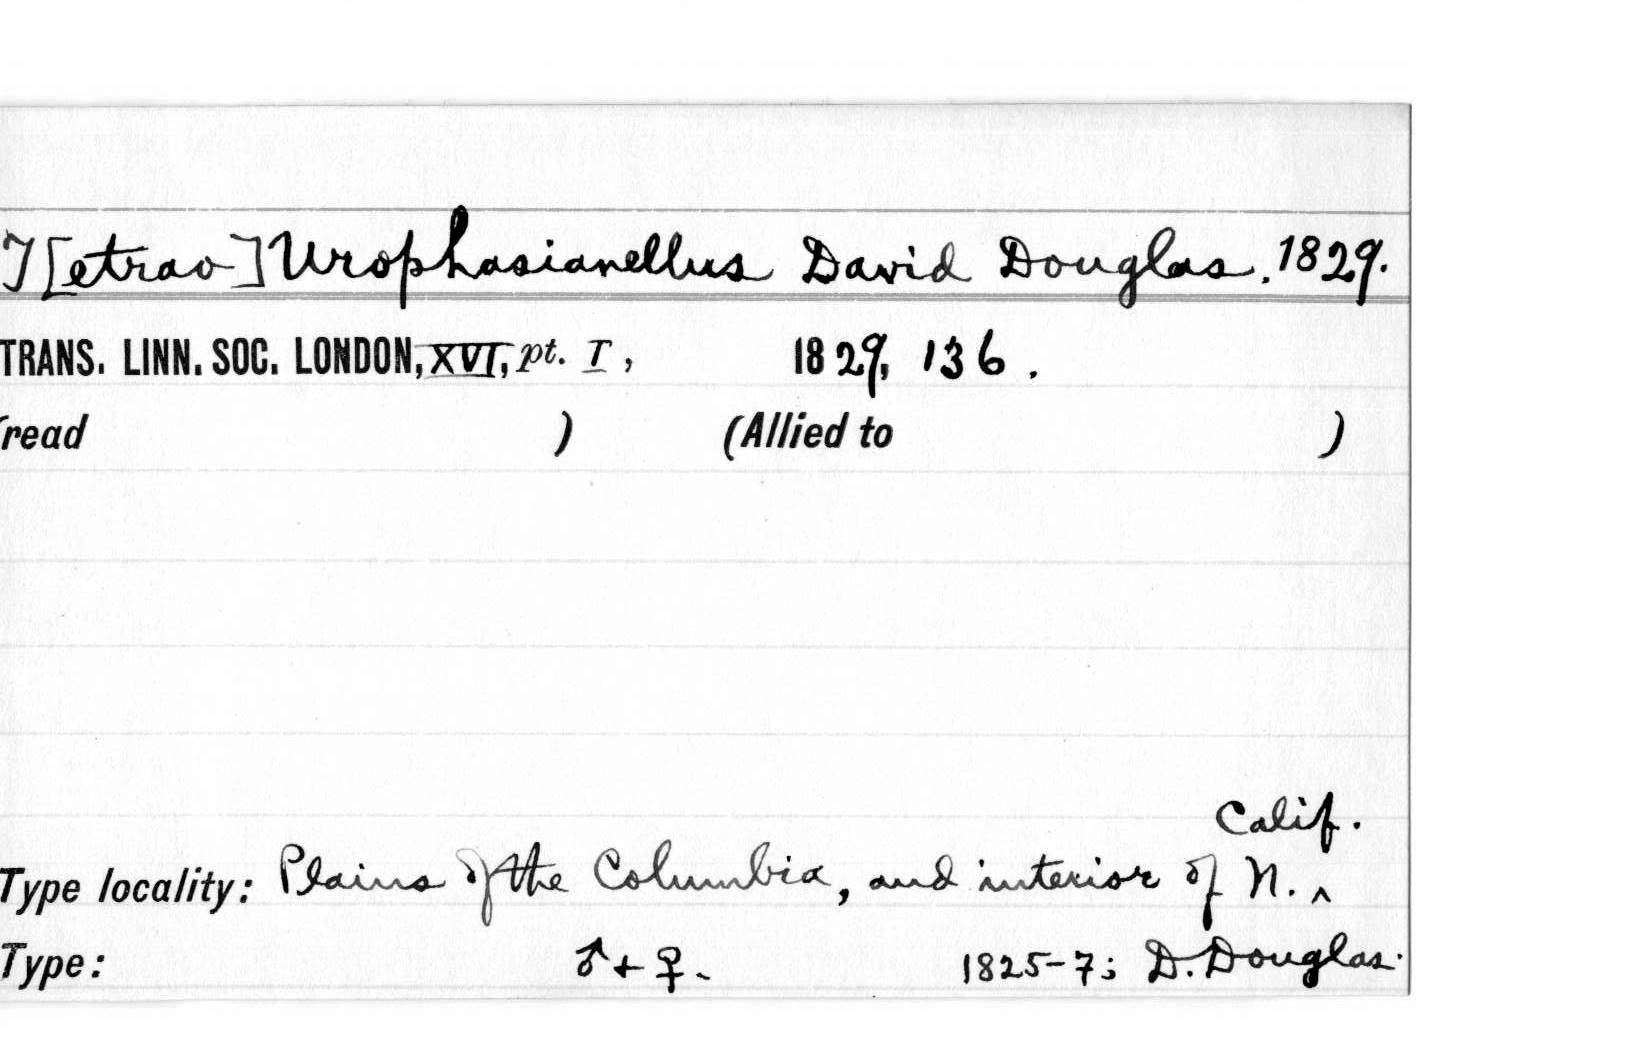 T[etrao] Urophasianellus David Douglas, 1829.
TRANS. LINN. SOC. LONDON, XVI, pt. I, 1829, 136.
(read ) (Allied to )
Calif.
Type locality: Plains of the Columbia, and interior of N. ^
Type: ♂ + ♀. 1825-7; D. Douglas.